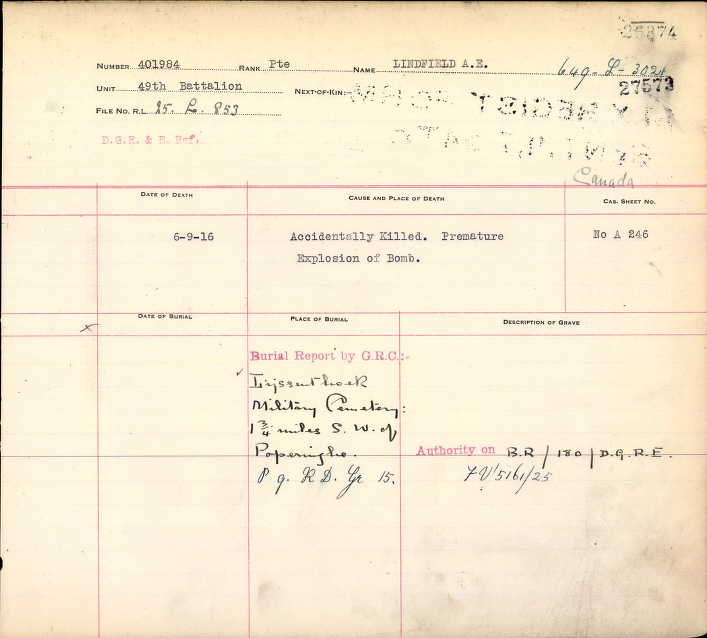 26874
NUMBER 401984 RANK Pte NAME LINDFIELD A.E. 649-L-3024
UNIT 49th Battalion NEXT-OF-KIN:- 27573
FILE No. R.L. 25. L. 853
D.G.R. & E. Ref.
Canada
DATE OF DEATH CAUSE AND PLACE OF DEATH CAS. SHEET NO.
6-9-16 Accidentally Killed. Premature No A 246
Explosion of Bomb.
DATE OF BURIAL PLACE OF BURIAL DESCRIPTION OF GRAVE
x
Burial Report by G.R.C.:-
Lijssenthoek
Military Cemetery:
1 3/4 miles S. W. of
Poperinghe. Authority on B.R/180/D.G.R.E.
P 9. R D. Gr 15. 7V'5161/25